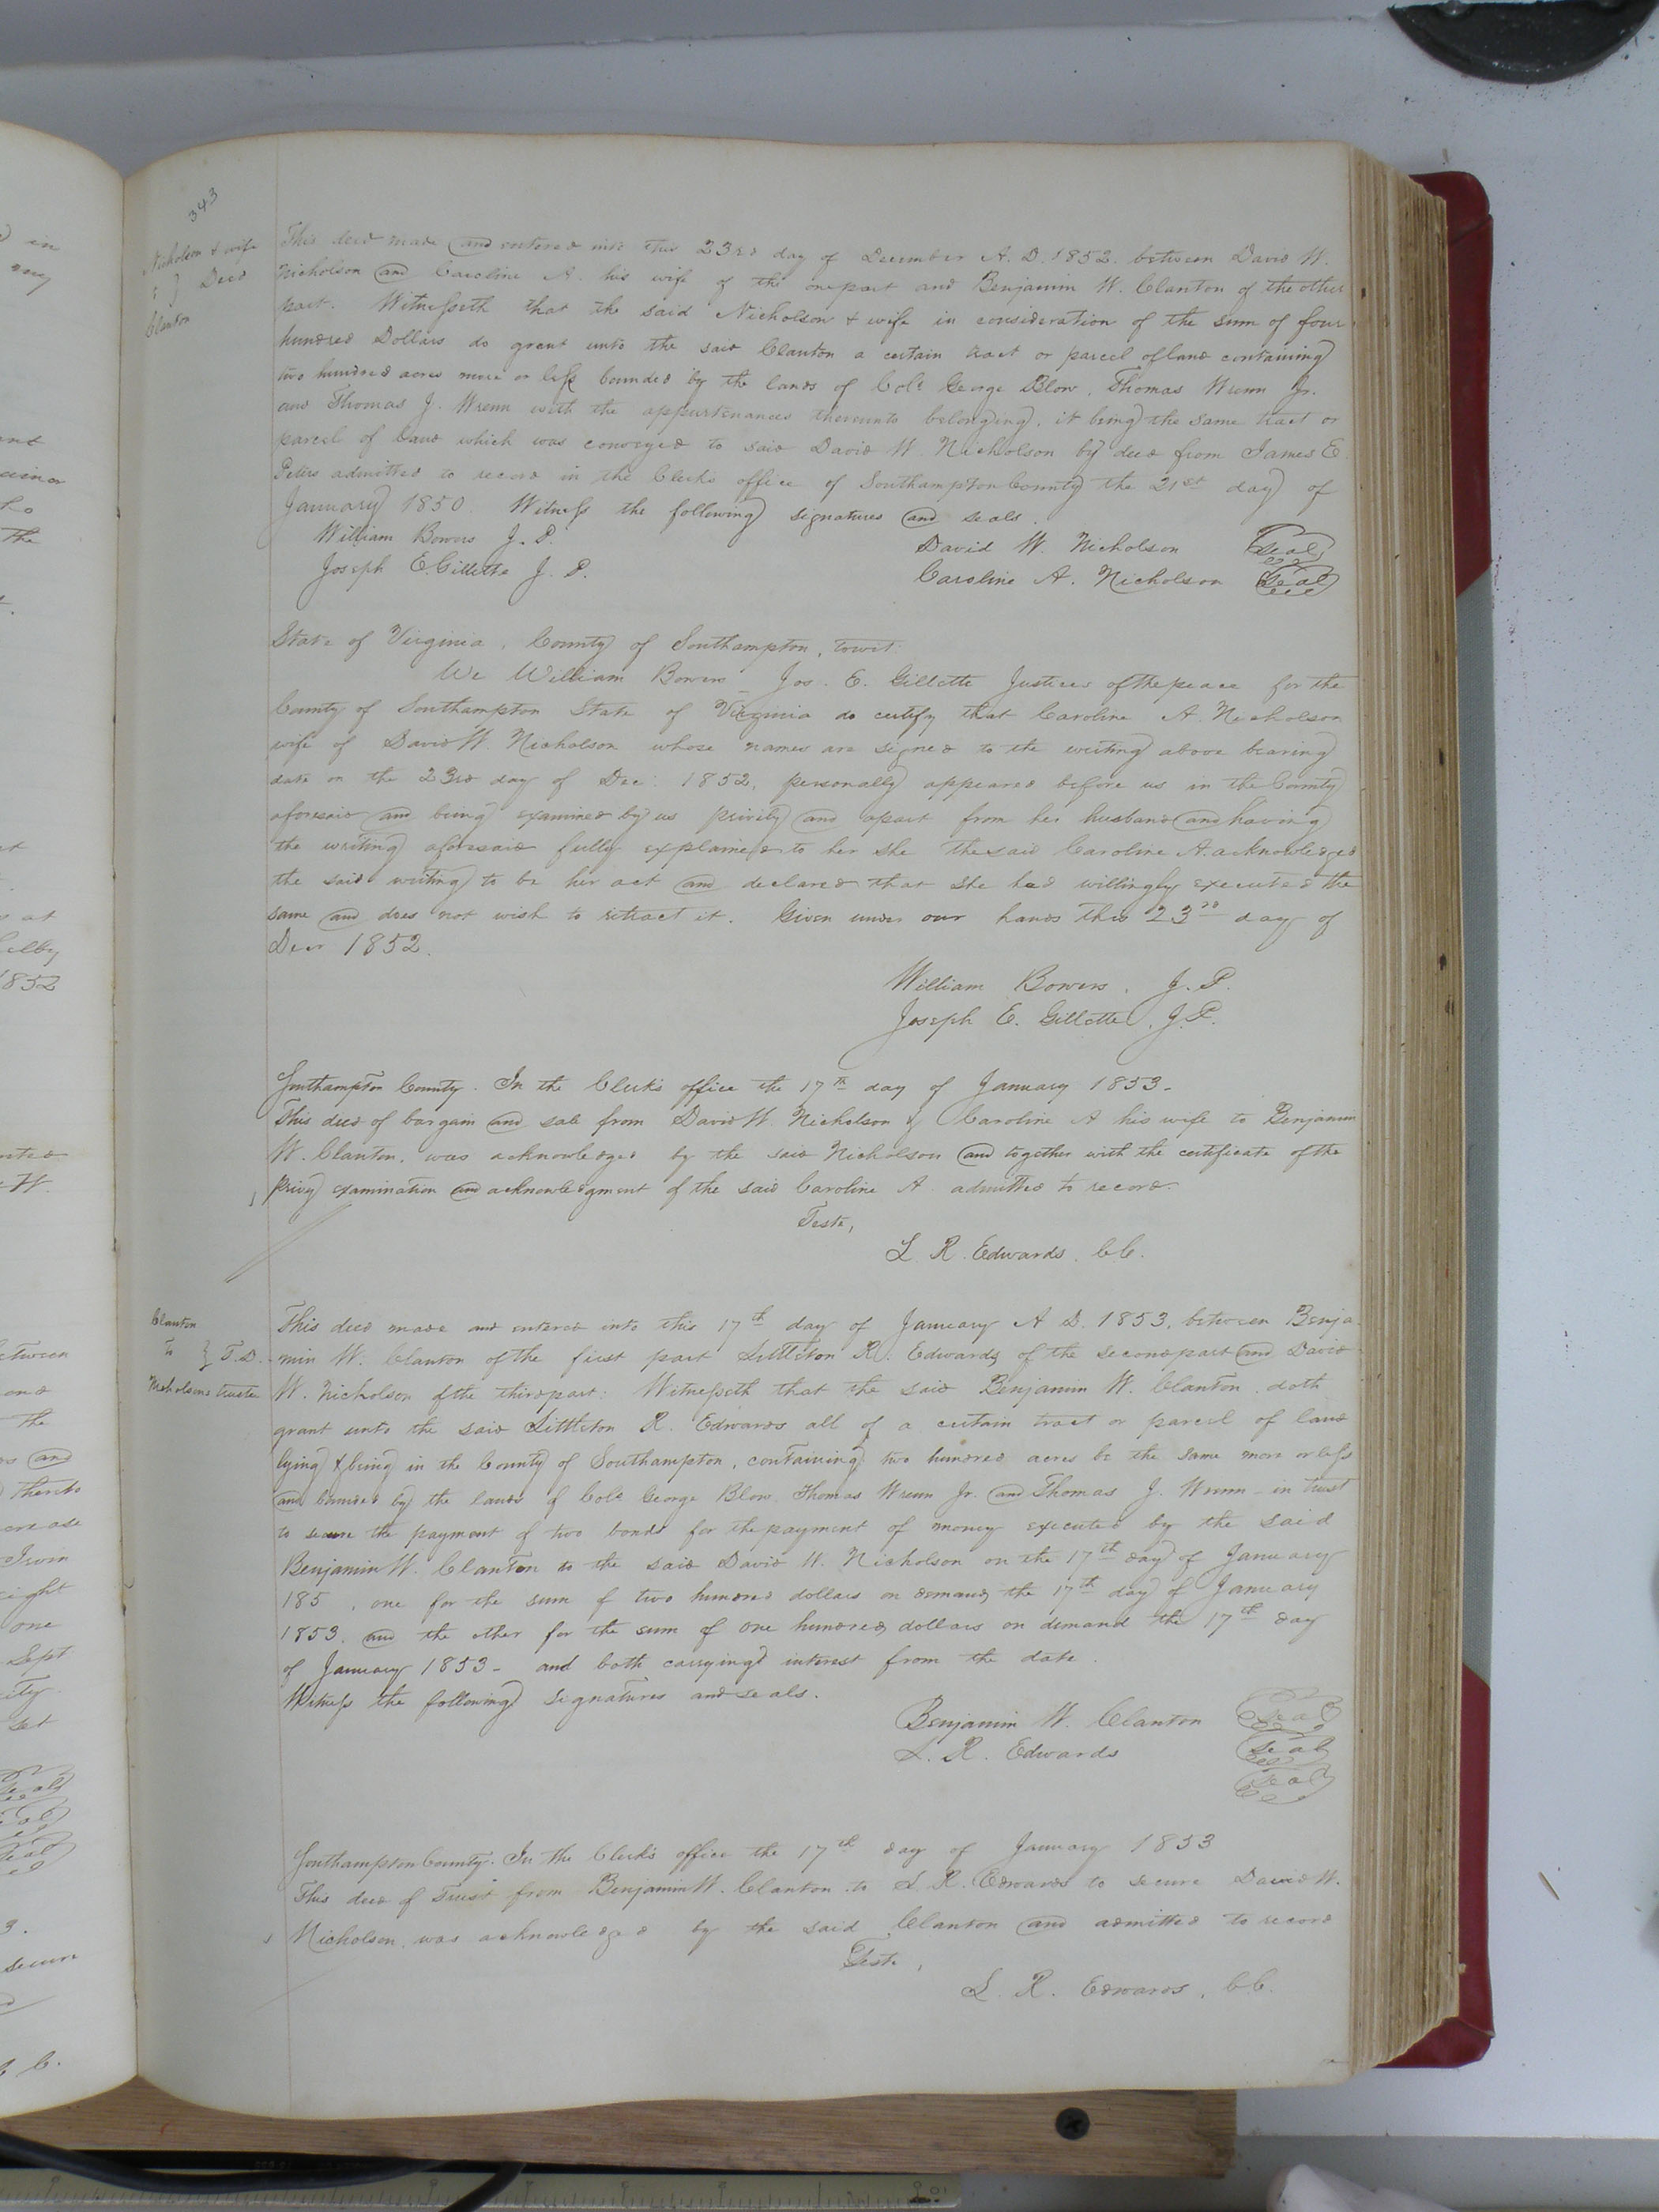 343
Nicholson & wife
Deed
Clanton
This deed made and entered into this 23rd day of December A. D. 1852. between David W.
Nicholson and Caroline A. his wife of the one part and Benjamin W. Clanton of the other
part. Witnesseth that the said Nicholson & wife in consideration of the sum of four
hundred Dollars do grant unto the said Clanton a certain tract or parcel of land containing
two hundred acres more or less bounded by the lands of Colo George Blow, Thomas Wrenn Jr.
and Thomas J. Wrenn with the appurtenances thereunto belonging, it being the same tract or
parcel of land which was conveyed to said David W. Nicholson by deed from James E.
Peters admitted to record in the Clerks office of Southampton County the 21st day of
January 1850. Witness the following signatures and seals.
William Bowers J. P.
Joseph E. Gillette J. P.
David W. Nicholson Seal
Caroline A. Nicholson Seal
State of Virginia, County of Southampton, towit:
We William Bowers Jos. E. Gillette Justices of the peace for the
County of Southampton State of Virginia do certify that Caroline A. Nicholson
wife of David W. Nicholson whose names are signed to the writing above bearing
date on the 23rd day of Dec. 1852, personally appeared before us in the County
aforesaid and being examined by us privily and apart from her husband and having
the writing aforesaid fully explained to her she the said Caroline A. acknowledged
the said writing to be her act and declared that she had willingly executed the
same and does not wish to retract it. Given under our hands this 23rd day of
Decr 1852.
William Bowers, J. P.
Joseph E. Gillette, J. P.
Southampton County. In the Clerk's office the 17th day of January 1853-
This deed of bargain and sale from David W. Nicholson & Caroline A his wife to Benjamin
W. Clanton, was acknowledged by the said Nicholson and together with the certificate of the
privy examination and acknowledgment of the said Caroline A. admitted to record.
Teste,
L. R. Edwards, CC.
Clanton
To } T.D.
Nicholsons trustee
This deed made and entered into this 17th day of January A D. 1853, between Benja-
min W. Clanton of the first part Littleton R. Edwards of the second part and David
W. Nicholson of the third part: Witnesseth that the said Benjamin W. Clanton, doth
grant unto the said Littleton R. Edwards all of a certain tract or parcel of land
lying & being in the County of Southampton, containing two hundred acres be the same more or less
and bounded by the lands of Colo George Blow, Thomas Wrenn Jr. and Thomas J. Wrenn - in trust
to secure the payment of two bonds for the payment of money executed by the said
Benjamin W. Clanton to the said David W. Nicholson on the 17th day of January
185 , one for the sum of two hundred dollars on demand the 17th day of January
1853. and the other for the sum of one hundred dollars on demand the 17th day
of January 1853- and both carrying interest from the date.
Witness the following signatures and seals.
Benjamin W. Clanton Seal
L. R. Edwards Seal
Seal
Southampton County. In the Clerk's office the 17th day of January 1853
This deed of Trust from Benjamin W. Clanton to L. R. Edwards to secure David W.
Nicholson, was acknowledged by the said Clanton and admitted to record
Teste,
L. R. Edwards, CC.